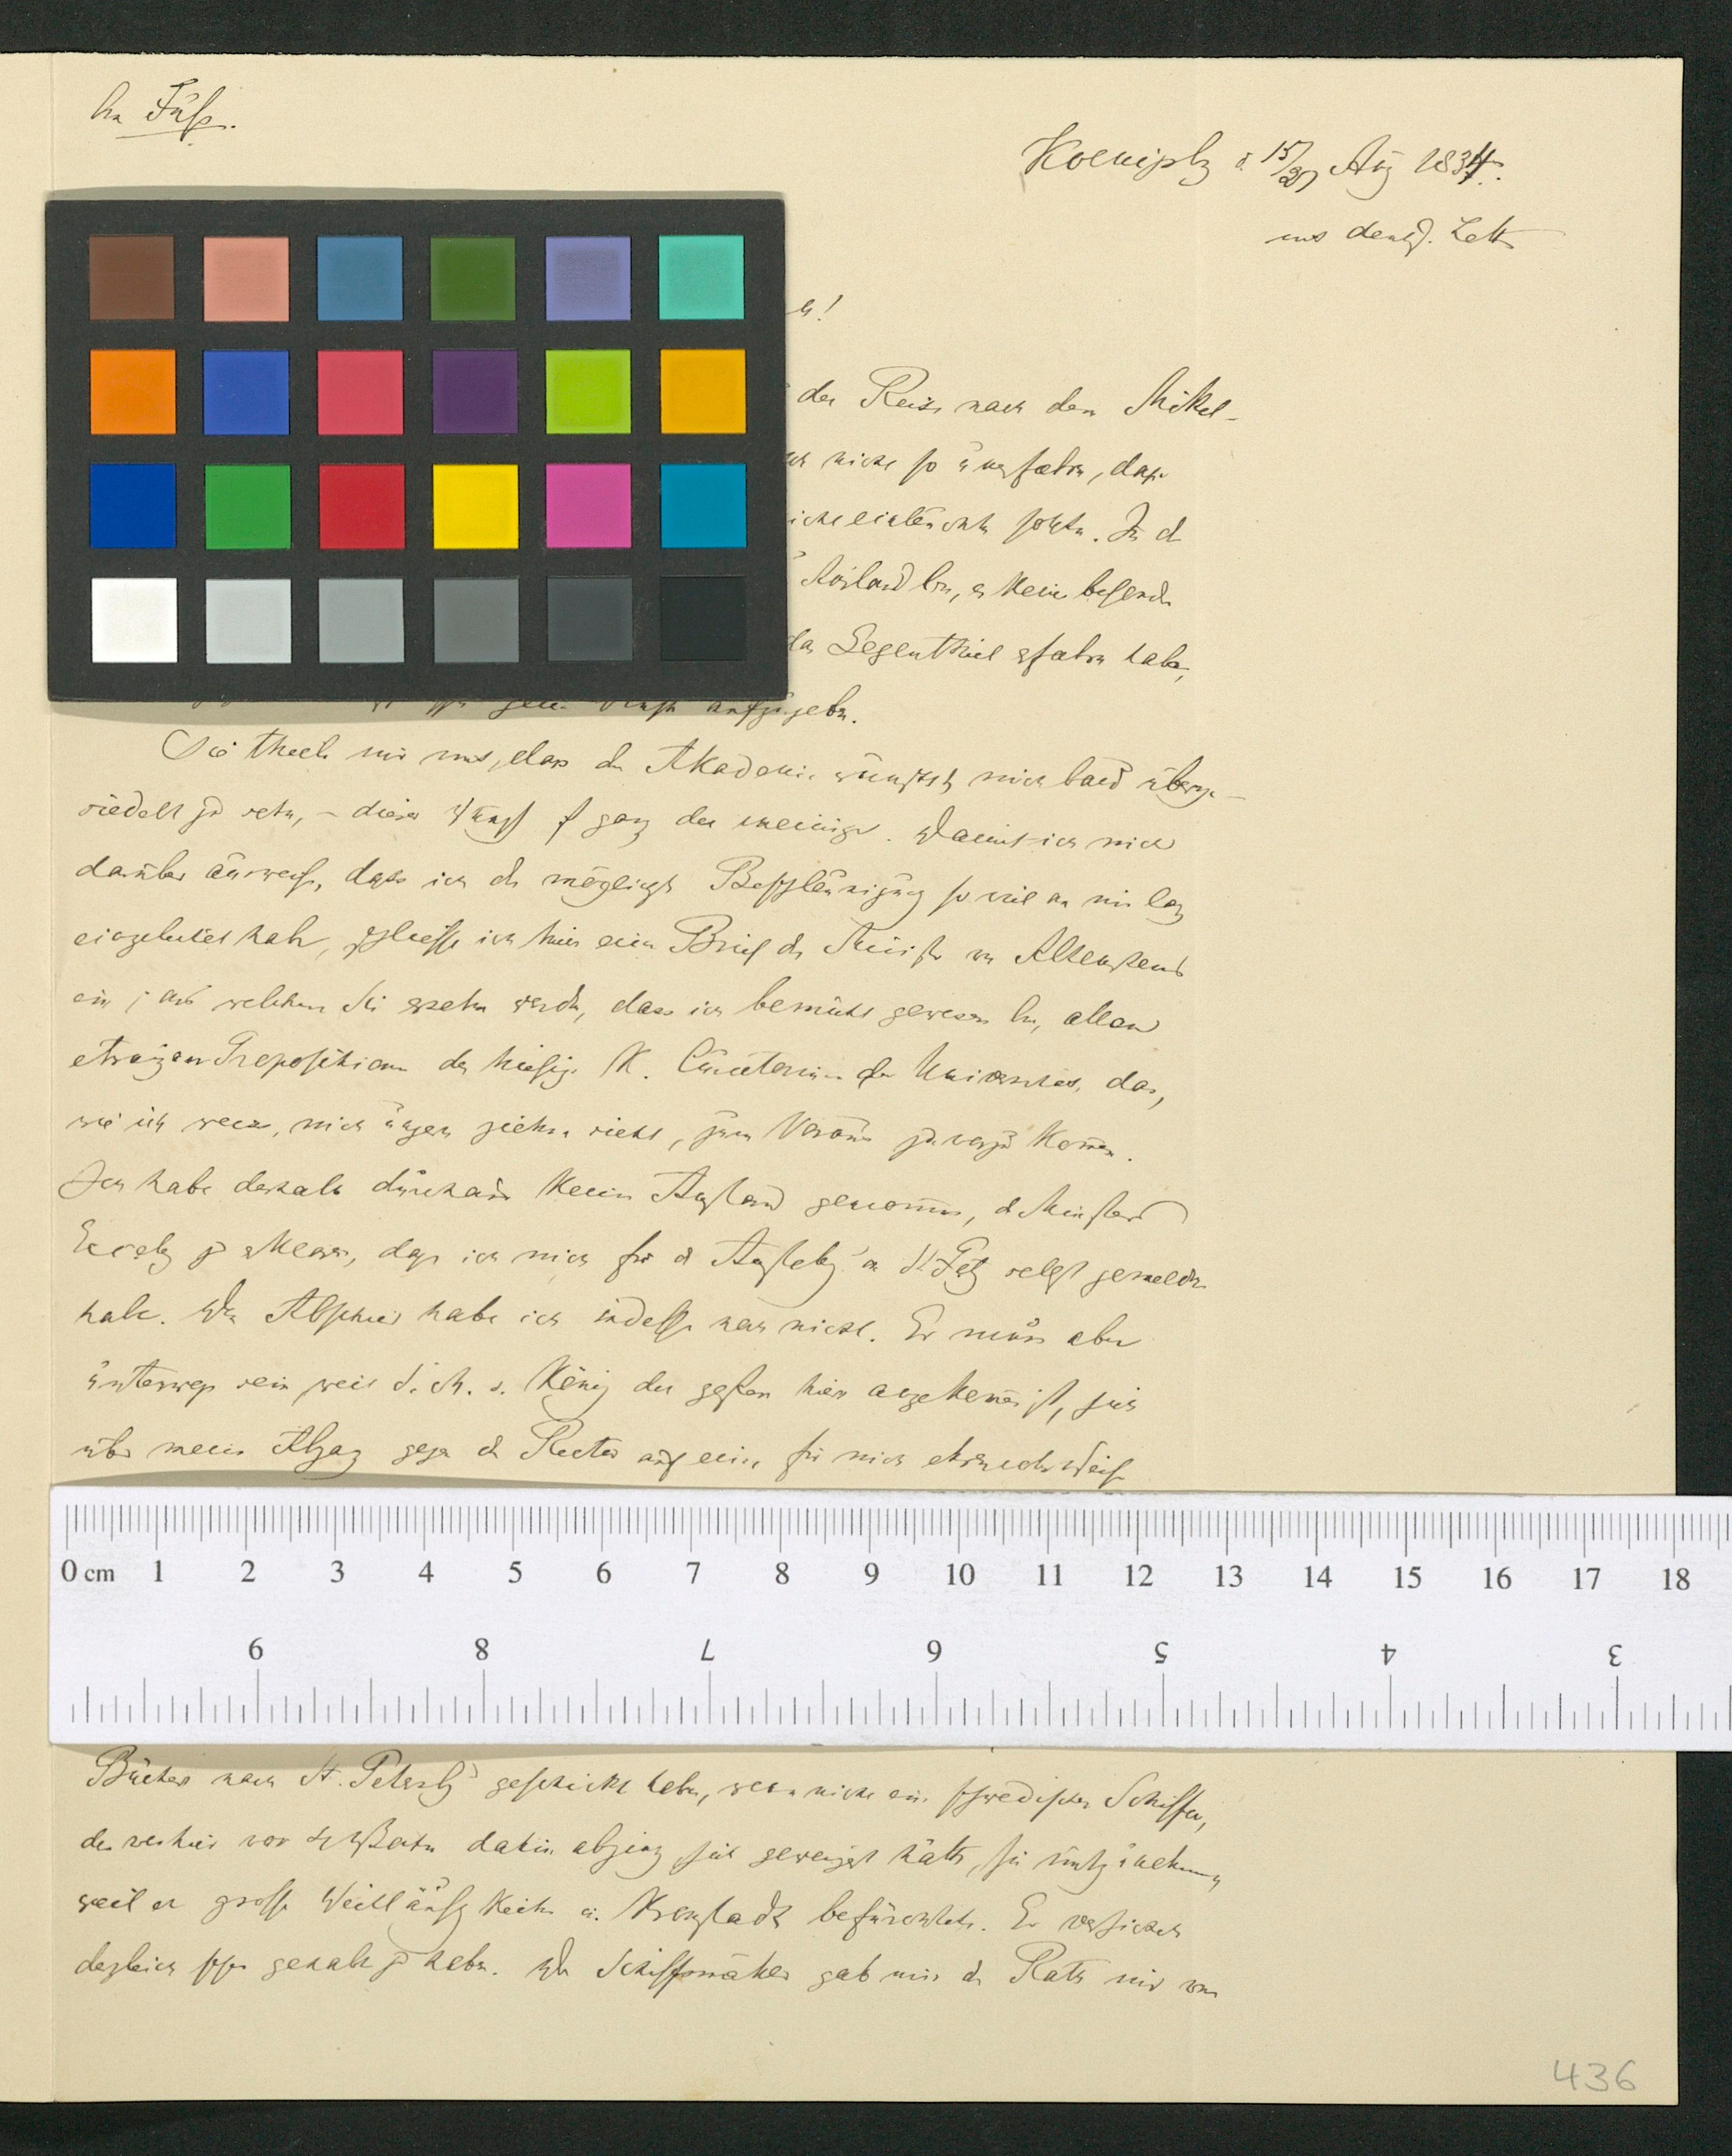 An Fuß.
Koenigsbg d. 15/27 Aug 1834.
aus deutsch. Lett
n!
der Reise nach dem Mikel-
nicht so ungefahrn, dass
einleuchten sollte. In d
Ausland bin, es kein besondr
das Gegentheil erfahrn habe,
aufzugebn.
Sie theiln mir mit, dass die Akademie wünscht, mich bald überge-
siedelt zu sehn, – dieser Wunsch ist ganz der meinige. Damit ich mich
darüber ausweise, dass ich die möglichste Beschleunigung so viel an mir lag
eingeleitet habe, schliesse ich hier einen Brief des Minister von Altenstein
ein, aus welchem Sie ersehn werdn, dass ich bemüht gewesen bin, allen
etwaigen Propositionen des hiesigen K. Curatoriums der Universität, das,
wie ich weiss, mich ungern ziehen sieht, zum Voraus zuvorzukommen.
Ich habe deshalb durchaus keinen Anstand genommen, d Minister
zu erklären, dass ich mich für d Anstellg in St. Petbg selbst gemeldet
habe. Den Abschied habe ich indesse noch nicht. Er muss aber
unterwegs sein weil S. M. d. König der gestern hier angekommen ist, sich
über meinen Abgang gegen d Rector auf eine für mich ehrenvolle Weise
Bücher nach St. Petersbg geschickt haben, wenn nicht ein schwedischer Schiffer,
der vorhin vor dahin abging sich geweigert hätte, sie mitzunehmen,
weil er grosse Weitläufigkeiten in Kronstadt befürchtete. Er versichert
dergleichen schon gehabt zu haben. Der Schiffsmäkler gab mir den Rath mir von
436
0 cm 1 2 3 4 5 6 7 8 9 10 11 12 13 14 15 16 17 18
9 8 7 6 5 4 3